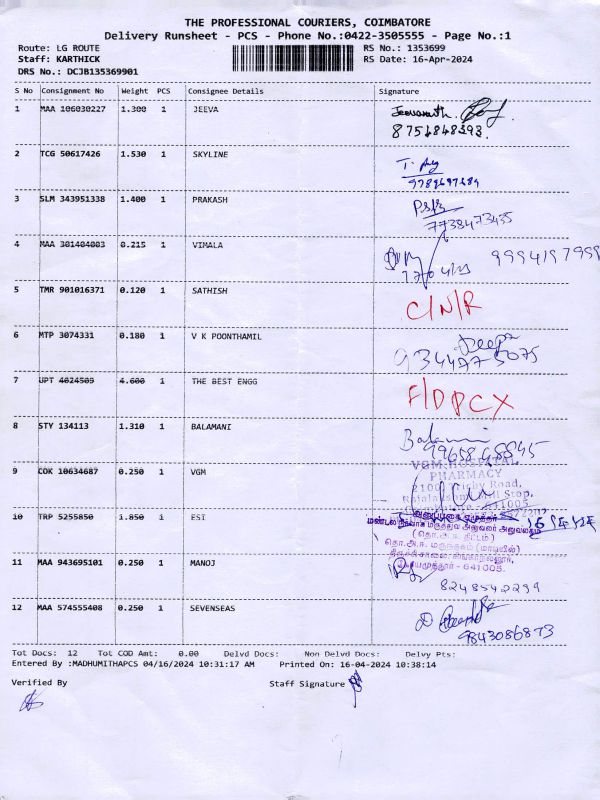 THE PROFESSIONAL COURIERS, COIMBATORE
Delivery Runsheet - PCS - Phone No.:0422-3505555 - Page No.:1
Route: LG ROUTE RS No.: 1353699
Staff: KARTHICK RS Date: 16-Apr-2024
DRS No.: DCJB135369901
S No Consignment No Weight PCS Consignee Details Signature
1 MAA 106030227 1.300 1 JEEVA
8754848393
2 TCG 50617426 1.530 1 SKYLINE
3 SLM 343951338 1.400 1 PRAKASH
7738473435
4 MAA 301404003 0.215 1 VIMALA
9994197999
5 TMR 901016371 0.120 1 SATHISH
C/N/R
6 MTP 3074331 0.180 1 V K POONTHAMIL
Deepa
9344975075
7 UPT 4024509 4.600 1 THE BEST ENGG
F/DPCX
8 STY 134113 1.310 1 BALAMANI
Balamani
9 COK 10634687 0.250 1 VGM
VGM HOSPITAL
PHARMACY
2100, Trichy Road,
Stop,
641005
10 TRP 5255850 1.850 1 ESI
மண்டல நிர்வாக மருத்துவ அலுவலர் அலுவலகம்
(தொ.அ.ஈ. திட்டம்)
தொ.அ.ஈ. மருந்தகம்
கோயமுத்தூர் - 641 005.
11 MAA 943695101 0.250 1 MANOJ
8248542299
12 MAA 574555408 0.250 1 SEVENSEAS
9843086873
Tot Docs: 12 Tot COD Amt: 0.00 Delvd Docs: Non Delvd Docs: Delvy Pts:
Entered By :MADHUMITHAPCS 04/16/2024 10:31:17 AM Printed On: 16-04-2024 10:38:14
Verified By Staff Signature